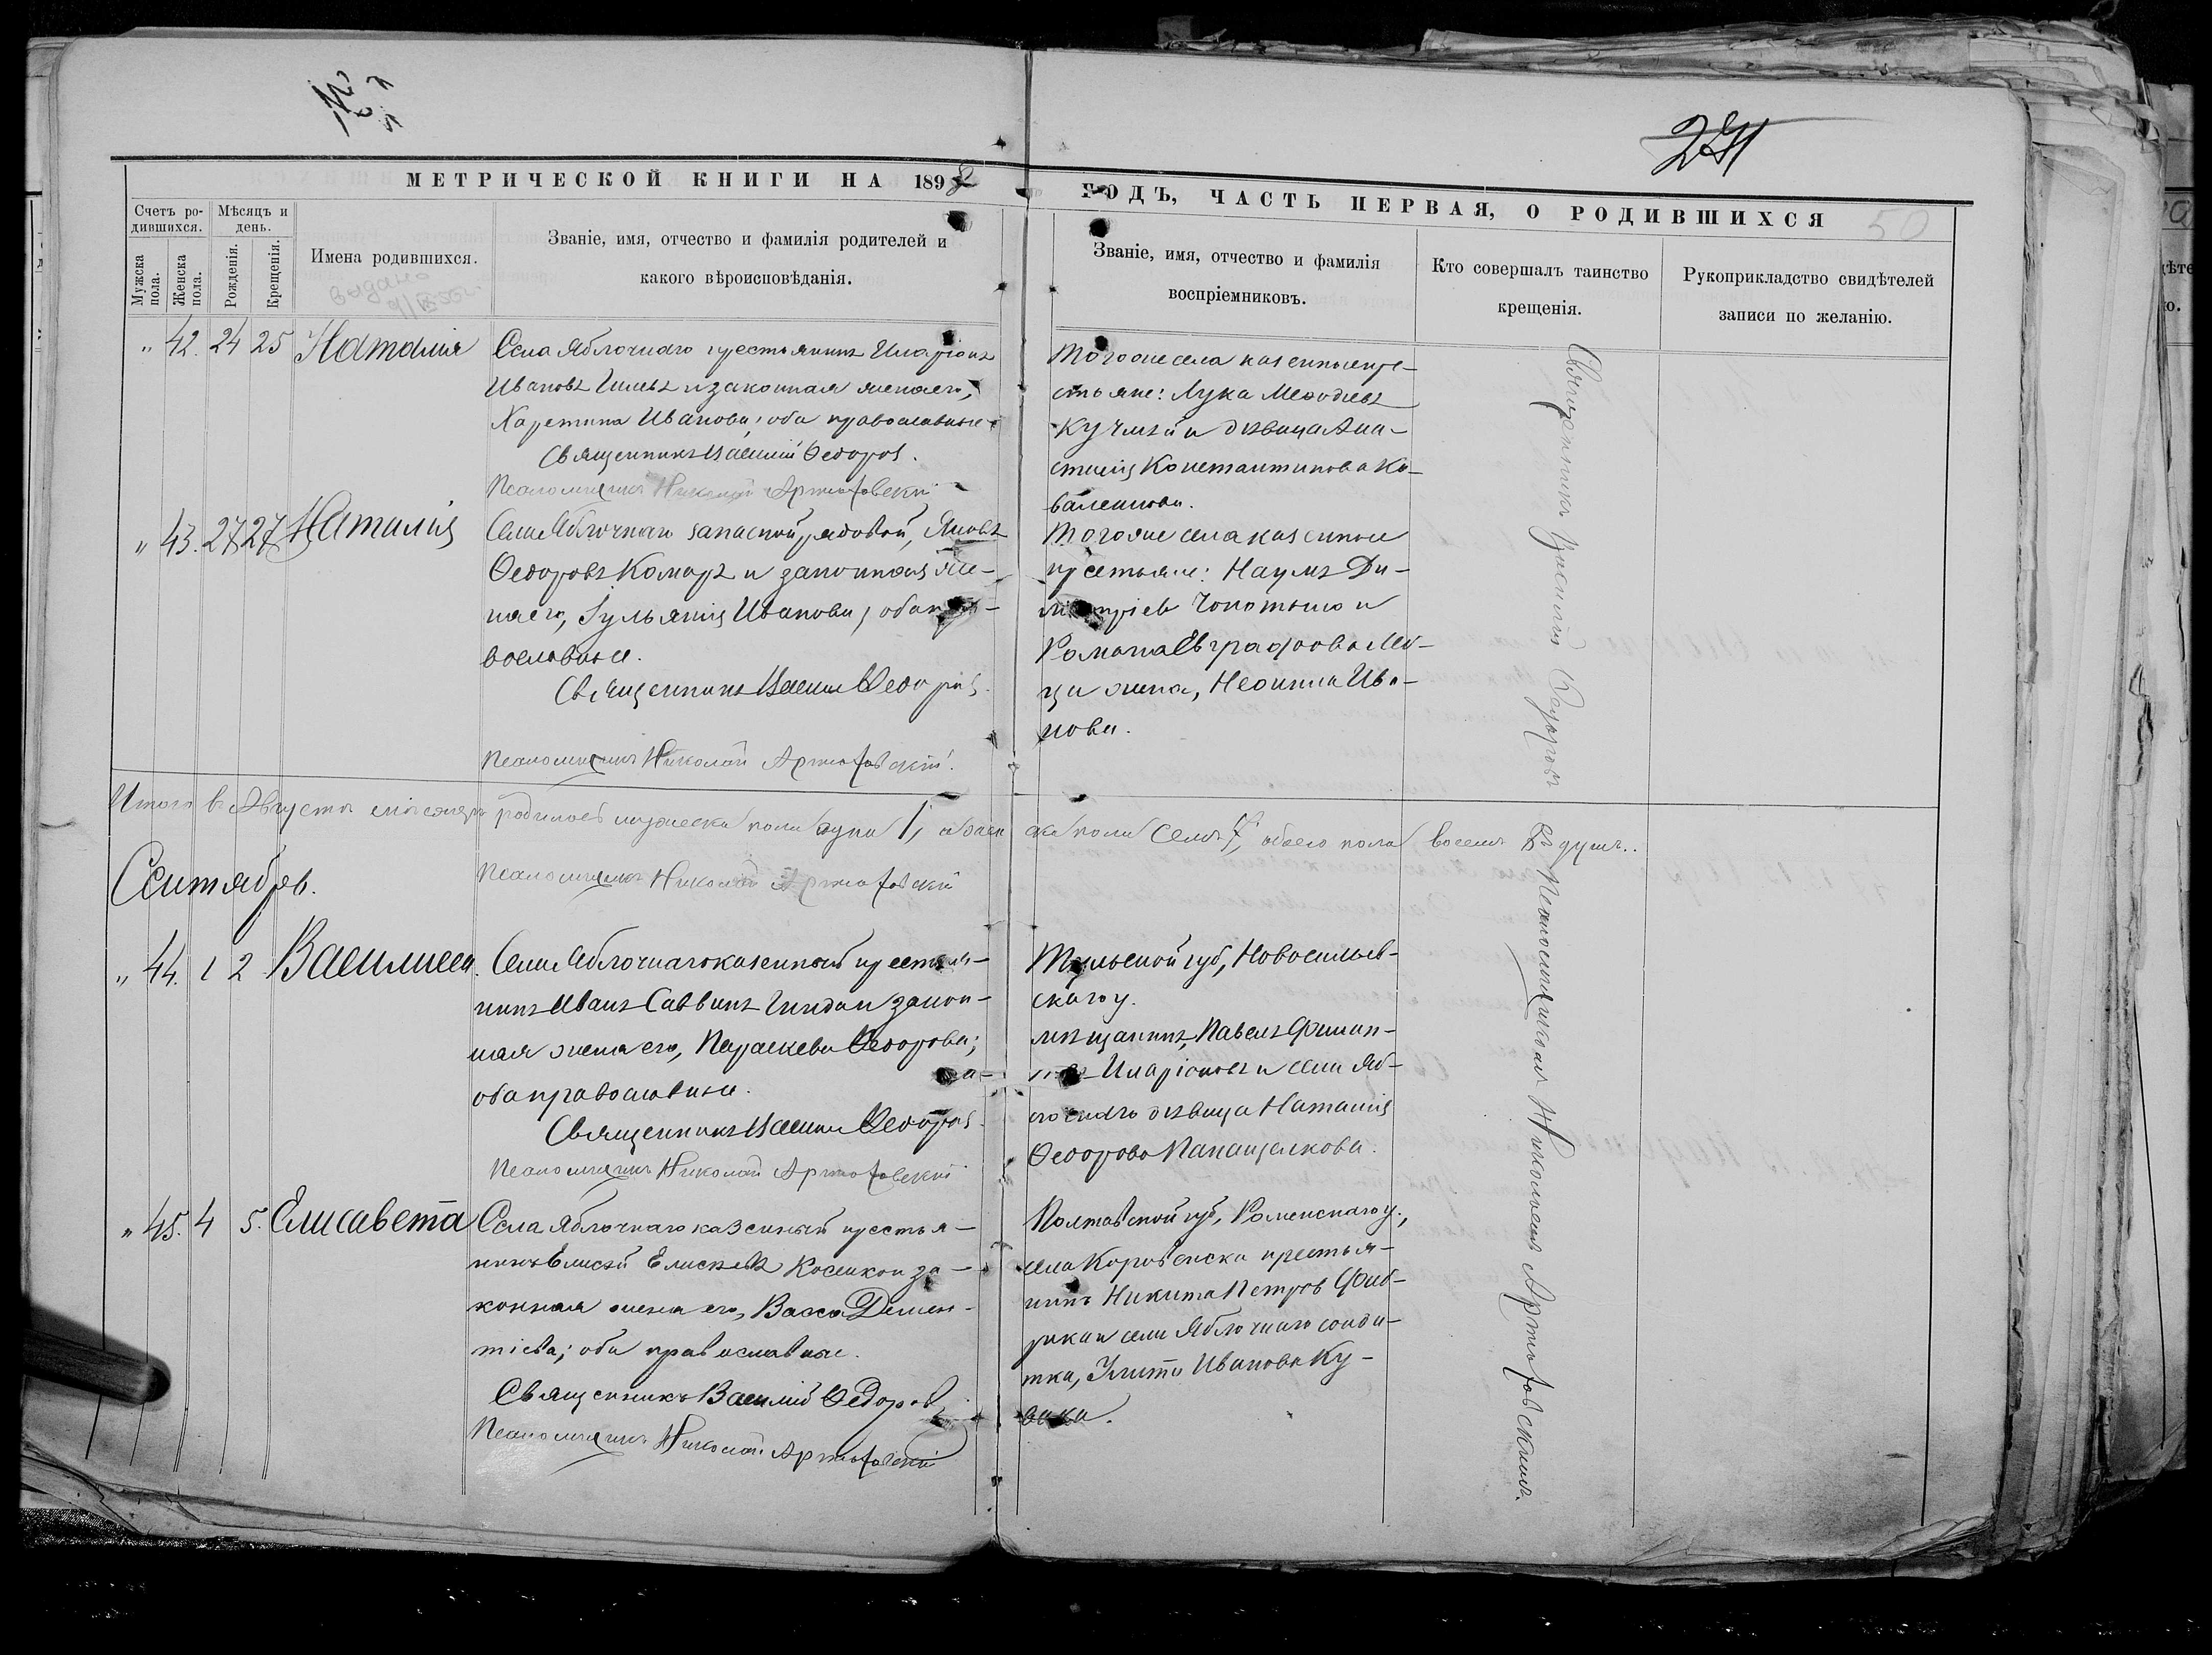 МЕТРИЧЕСКОЙ КНИГИ НА 1898
ГОДЪ, ЧАСТЬ ПЕРВАЯ, О РОДИВШИХСЯ
50
Счетъ ро-
дившихся.
Мѣсяцъ и
день.
Мужска
пола.
Женска
пола.
Рожденія.
Крещенія.
Имена родившихся.
Званіе, имя, отчество и фамилія родителей и
какого вѣроисповѣданія.
Званіе, имя, отчество и фамилія
воспріемниковъ.
Кто совершалъ таинство
крещенія.
Рукоприкладство свидѣтелей
записи по желанію.
выдано
" 42. 24 25 Наталія
Села Яблочнаго крестьянинъ Иларіонъ
Ивановъ и законная жена его,
Харетина Иванова; оба православные
Священникъ Василій Ѳеодоровъ.
Псаломщикъ Николай Артюховскій
Тогоже села казенные кре-
стьяне: Лука Меѳодіевъ
и дѣвица Ана-
стасія Константинова Ко-
валенкова.
" 43. 27 27 Наталія
Села Яблочнаго запасной рядовой, Яковъ
Ѳеодоровъ Комаръ и законная же-
на его, Іульянія Иванова; оба пра-
вославные.
Священникъ Василій Ѳеодоровъ.
Псаломщикъ Николай Артюховскій.
Тогоже села казенные
крестьяне: Наумъ Ди-
митріевъ и
Романа Евграфова
жена, Неонила Ива-
нова.
Итого въ Августѣ мѣсяцѣ родилось мужеска пола душа 1, а женска пола семь 7, обоего пола восемь 8 душъ.
Псаломщикъ Николай Артюховскій
Сентябрь.
" 44. 1 2 Василисса.
Села Яблочнаго казенный крестья-
нинъ Иванъ Саввинъ и закон-
ная жена его, Параскева Ѳеодорова;
оба православные.
Священникъ Василій Ѳеодоровъ.
Псаломщикъ Николай Артюховскій
Тульской губ, Новосильев-
скаго у.
мѣщанинъ, Павелъ Филип-
повъ Иларіоновъ и села Яб-
лочнаго дѣвица Наталія
Ѳеодорова Папащенкова.
" 45. 4 5. Елисавета
Села Яблочнаго казенный крестья-
нинъ Елисей Елисѣевъ Косенко и за-
конная жена его, Васса Демен-
тіева; оба православные.
Священникъ Василій Ѳедоровъ.
Псаломщикъ Николай Артюховскій
Полтавской губ, Роменскаго у.,
села Коровенска крестья-
нинъ Никита Петровъ
и села Яблочнаго солда-
тка, Улита Иванова Ку-
Священникъ Василій Ѳеодоровъ
съ Псаломщикомъ Николаемъ Артюховскимъ.